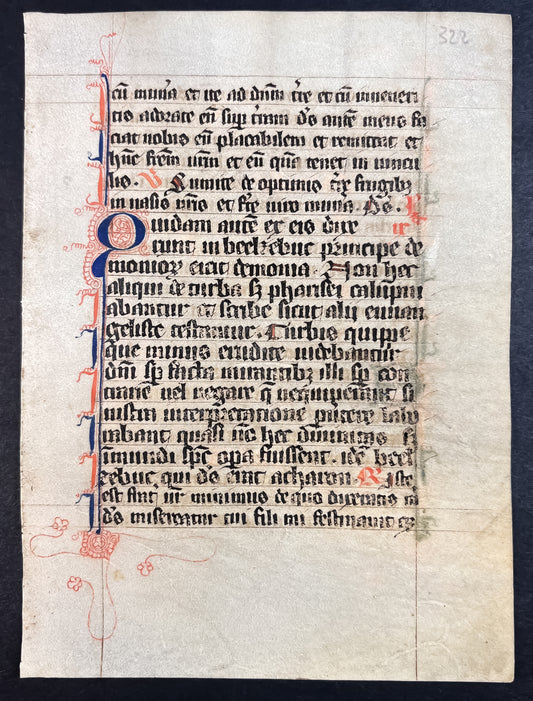 322
cū mun̄a et ite ad dn̄m tr̄e et cū inveneri
tis adorate eū sup̄ tr̄am ds̄ autē meus fa
ciat vobis eū placabilem et remittat et
hūc fr̄em vr̄m et eū quē tenet in vincu
lis. V Sumite de optimis tr̄e frugibꝫ
in vasis vr̄is et fr̄te viro muna. Ds̄. R
Quidam autē ex eis dixe
runt in beelzebut principe de
monioꝝ eicit demonia. Non hec
aliqui de turba sꝫ pharisei calūpni
abantur et scribe sicut alij euuan
geliste testantur. Turbis quippe
que minus erudite videbantur
dn̄m sp̄ facta mirantibꝫ illi sp̄ con
vel negare q̄ nequiverant si
nistra interpretatione labo
rabant quasi nō hec sꝫ
inmundi sp̄c opa fuissent. idē beel
zebut qui ds̄ erat acharon. R Iste
est frat vr̄ minimus de quo dixeratis m
ds̄ misereatur tui fili mi festinavit qꝫ